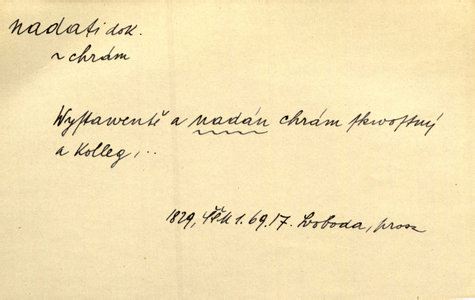 nadati dok.
~ chrám
Wystawentě a nadán chrám skwostný
a Kolleg, ..
1829, 1. 69. 17. Svoboda, prosa